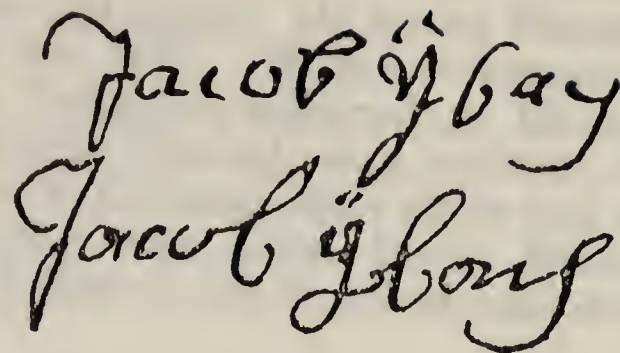 Jacob ÿ bay
Jacob ÿ bory